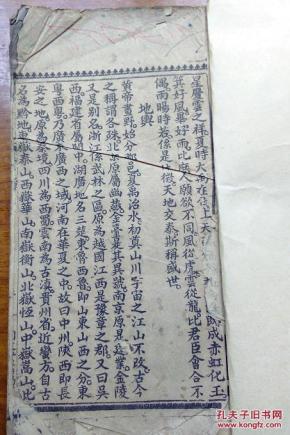 星慶雲之祥夏時大禹在位上天
成赤虹化玉
箕好風畢好雨比庶人願欲不同風從虎雲從龍比君臣會合不
偶雨暘時若係是休徵天地交泰斯稱盛世
地輿
黃帝畫野始分都邑夏禹治水初奠山川宇宙之江山不改古今
之稱謂各殊北京原屬幽燕金臺是其異號南京原是建業金陵
又是別名浙江係武林之區原為越國江西是豫章之郡又曰吳
西福建省屬閩中湖廣地名三楚東魯西魯即山東山西之分東
粵西粵乃廣東廣西之域河南在華夏之中故曰中州陝西即長
安之地原為秦境四川為西蜀雲南為古滇貴州省近蠻方自古
名為黔地東嶽泰山西嶽華山南嶽衡山北嶽恆山中嶽嵩山此